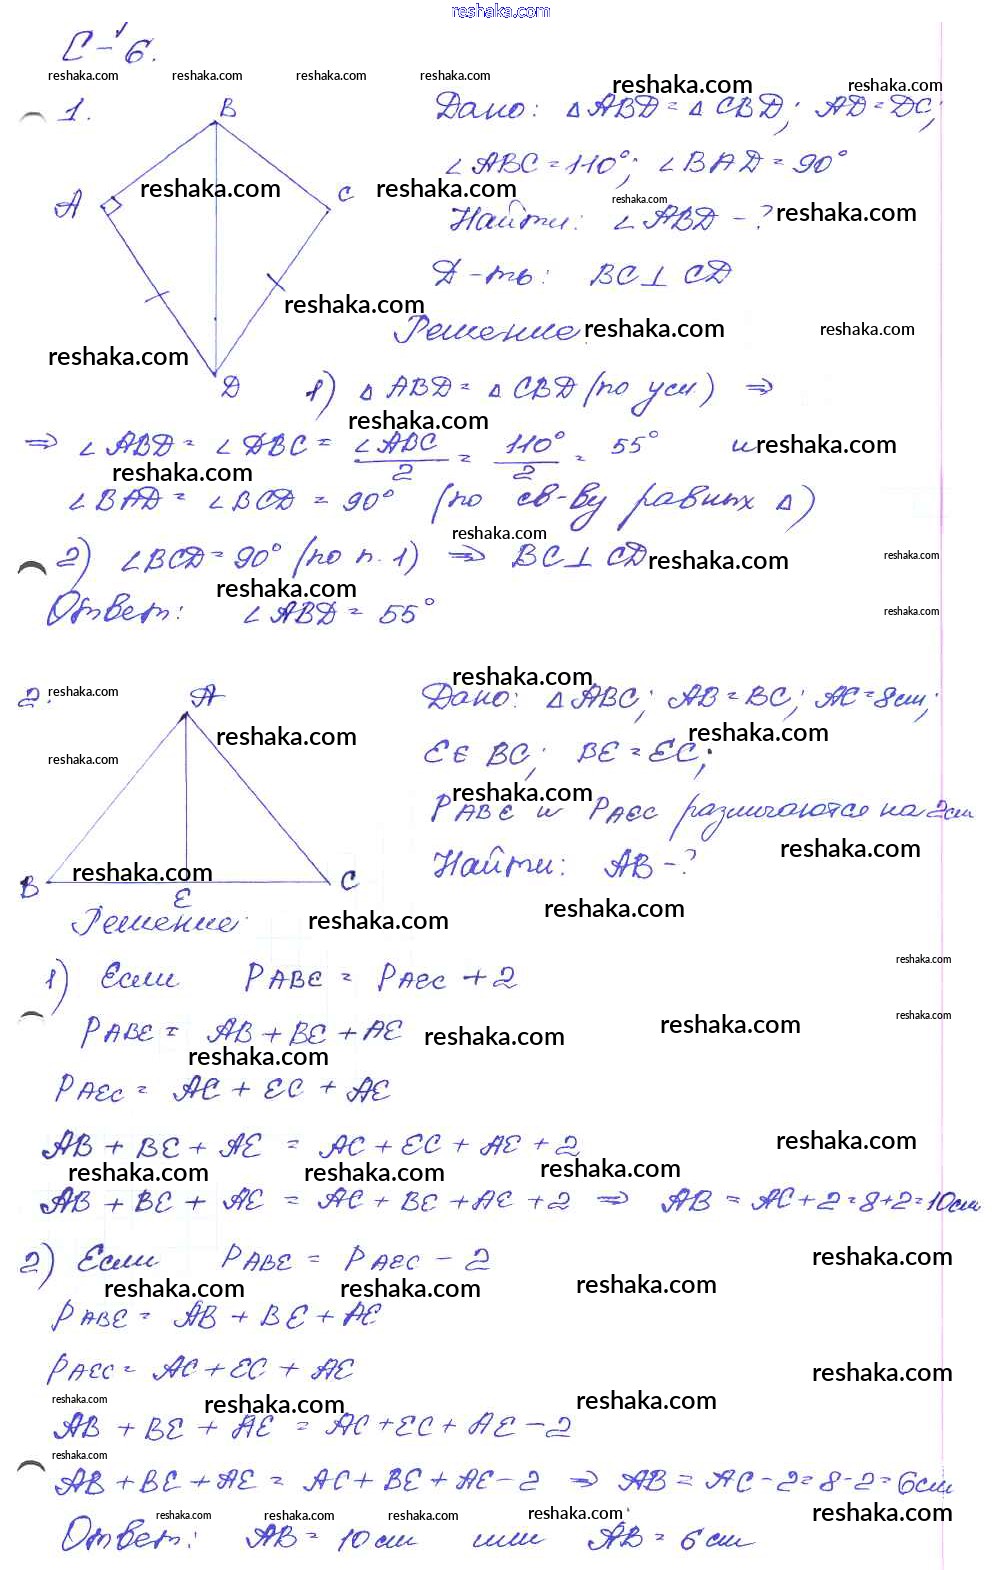 reshaka.com
С-6.
1.
B
A
C
D
Дано: △ABD = △CBD; AD = DC;
∠ABC = 110°; ∠BAD = 90°
Найти: ∠ABD - ?
Д-ть: BC ⊥ CD
Решение:
1) △ABD = △CBD (по усл) ⇒
⇒ ∠ABD = ∠DBC = ∠ABC/2 = 110°/2 = 55° и
∠BAD = ∠BCD = 90° (по св-ву равных △)
2) ∠BCD = 90° (по п. 1) ⇒ BC ⊥ CD
Ответ: ∠ABD = 55°
2.
A
B
E
C
Дано: △ABC; AB = BC; AC = 8см;
E ∈ BC; BE = EC;
PABE и PAEC различаются на 2см
Найти: AB - ?
Решение
1) Если PABE = PAEC + 2
PABE = AB + BE + AE
PAEC = AC + EC + AE
AB + BE + AE = AC + EC + AE + 2
AB + BE + AE = AC + BE + AE + 2 ⇒ AB = AC + 2 = 8 + 2 = 10см
2) Если PABE = PAEC - 2
PABE = AB + BE + AE
PAEC = AC + EC + AE
AB + BE + AE = AC + EC + AE - 2
AB + BE + AE = AC + BE + AE - 2 ⇒ AB = AC - 2 = 8 - 2 = 6см
Ответ: AB = 10 см или AB = 6 см